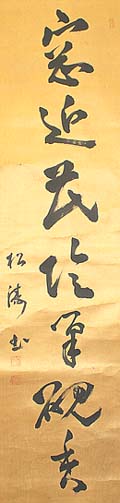 窓近花陰筆硯香
松濤書